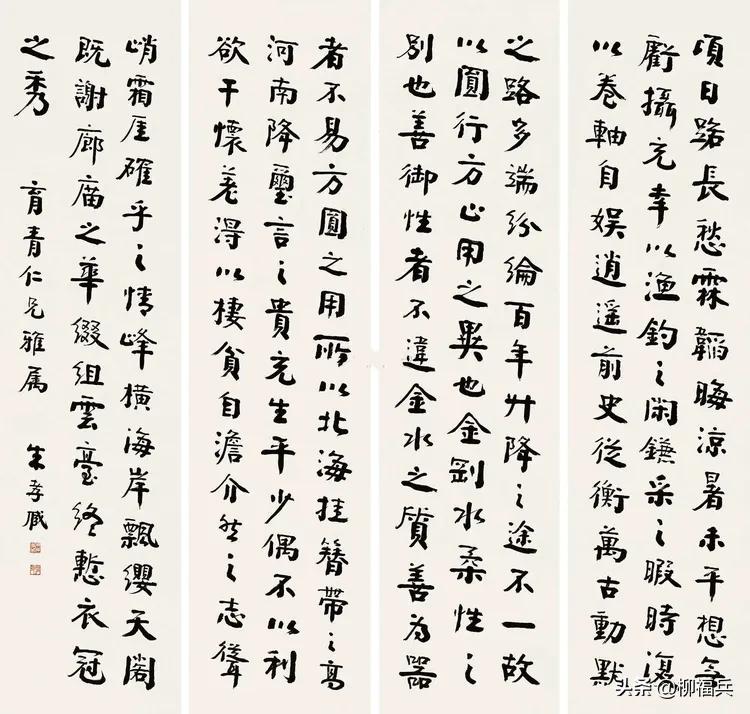 頃日路長愁霖韜晦涼暑未平想無
虧攝充幸以漁釣之閑鎌采之暇時復
以卷軸自娱逍遥前史從衡萬古動默
之路多端紛綸百年升降之途不一故
以圓行方止用之異也金剛水柔性之
別也善御性者不違金水之質善為器
者不易方圓之用所以北海挂簪帶之高
河南降璽言之貴充生平少偶不以利
欲干懷差得以棲貧自澹介然之志聳
峭霜厓確乎之情峰橫海岸飄纓天閣
既謝廊廟之華綴組雲臺終慙衣冠
之秀 育青仁兄雅属 朱孝臧
头条 @柳福兵